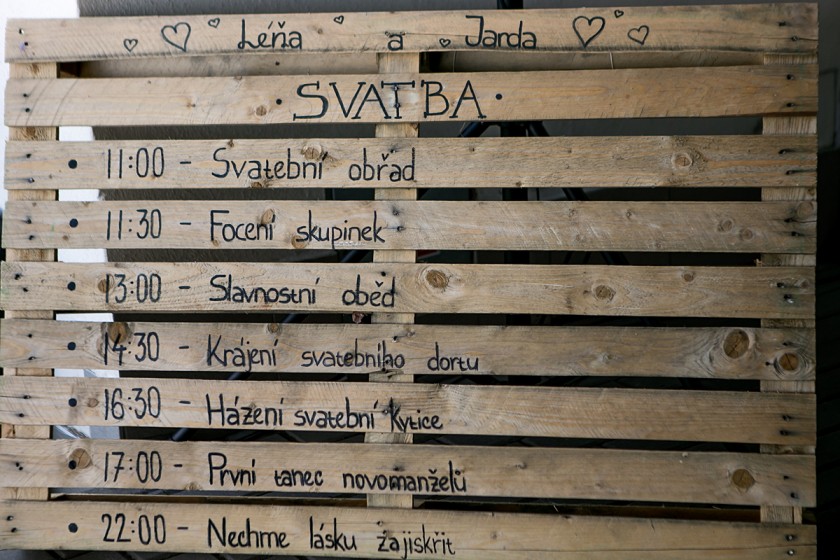 Léňa a Jarda
• SVATBA •
• 11:00 - Svatební obřad
• 11:30 - Focení skupinek
• 13:00 - Slavnostní oběd
• 14:30 - Krájení svatebního dortu
• 16:30 - Házení svatební kytice
• 17:00 - První tanec novomanželů
• 22:00 - Nechme lásku zajiskřit